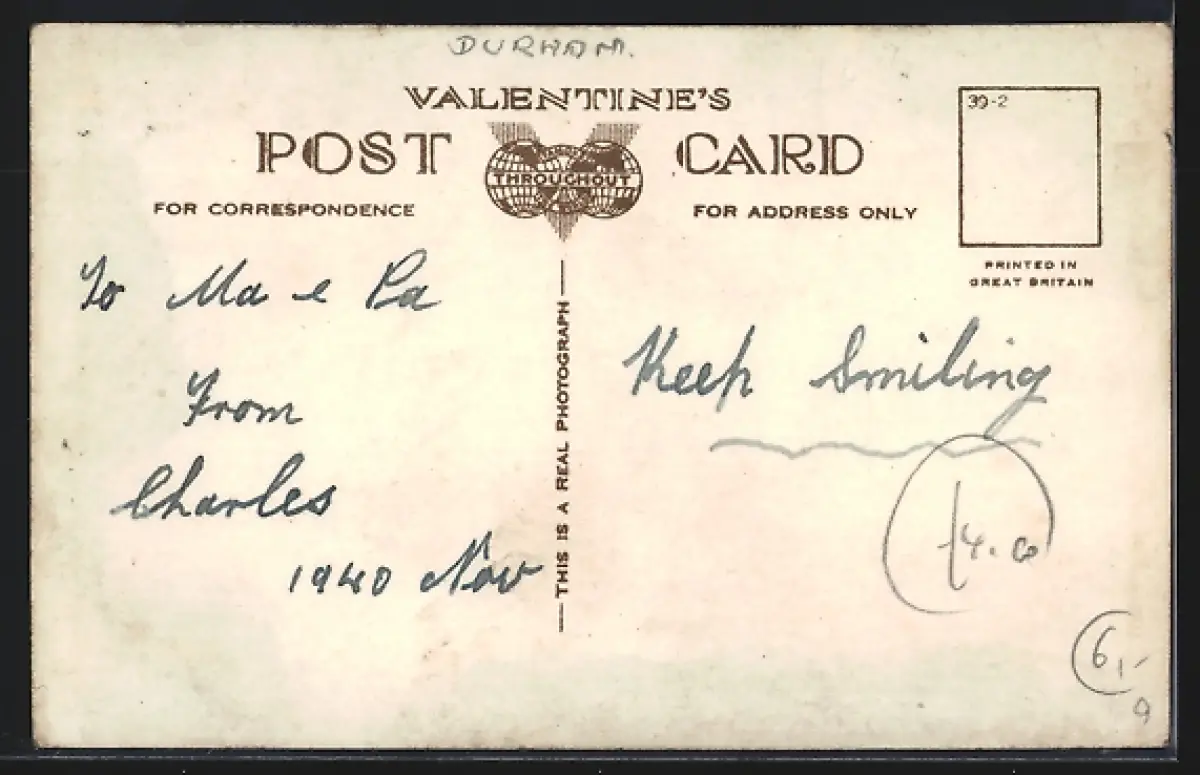 DURHAM.
VALENTINE'S
POST CARD
THROUGHOUT
FOR CORRESPONDENCE
FOR ADDRESS ONLY
39-2
PRINTED IN
GREAT BRITAIN
To Ma & Pa
From
Charles
1940 Nov
THIS IS A REAL PHOTOGRAPH
Keep Smiling
6,-